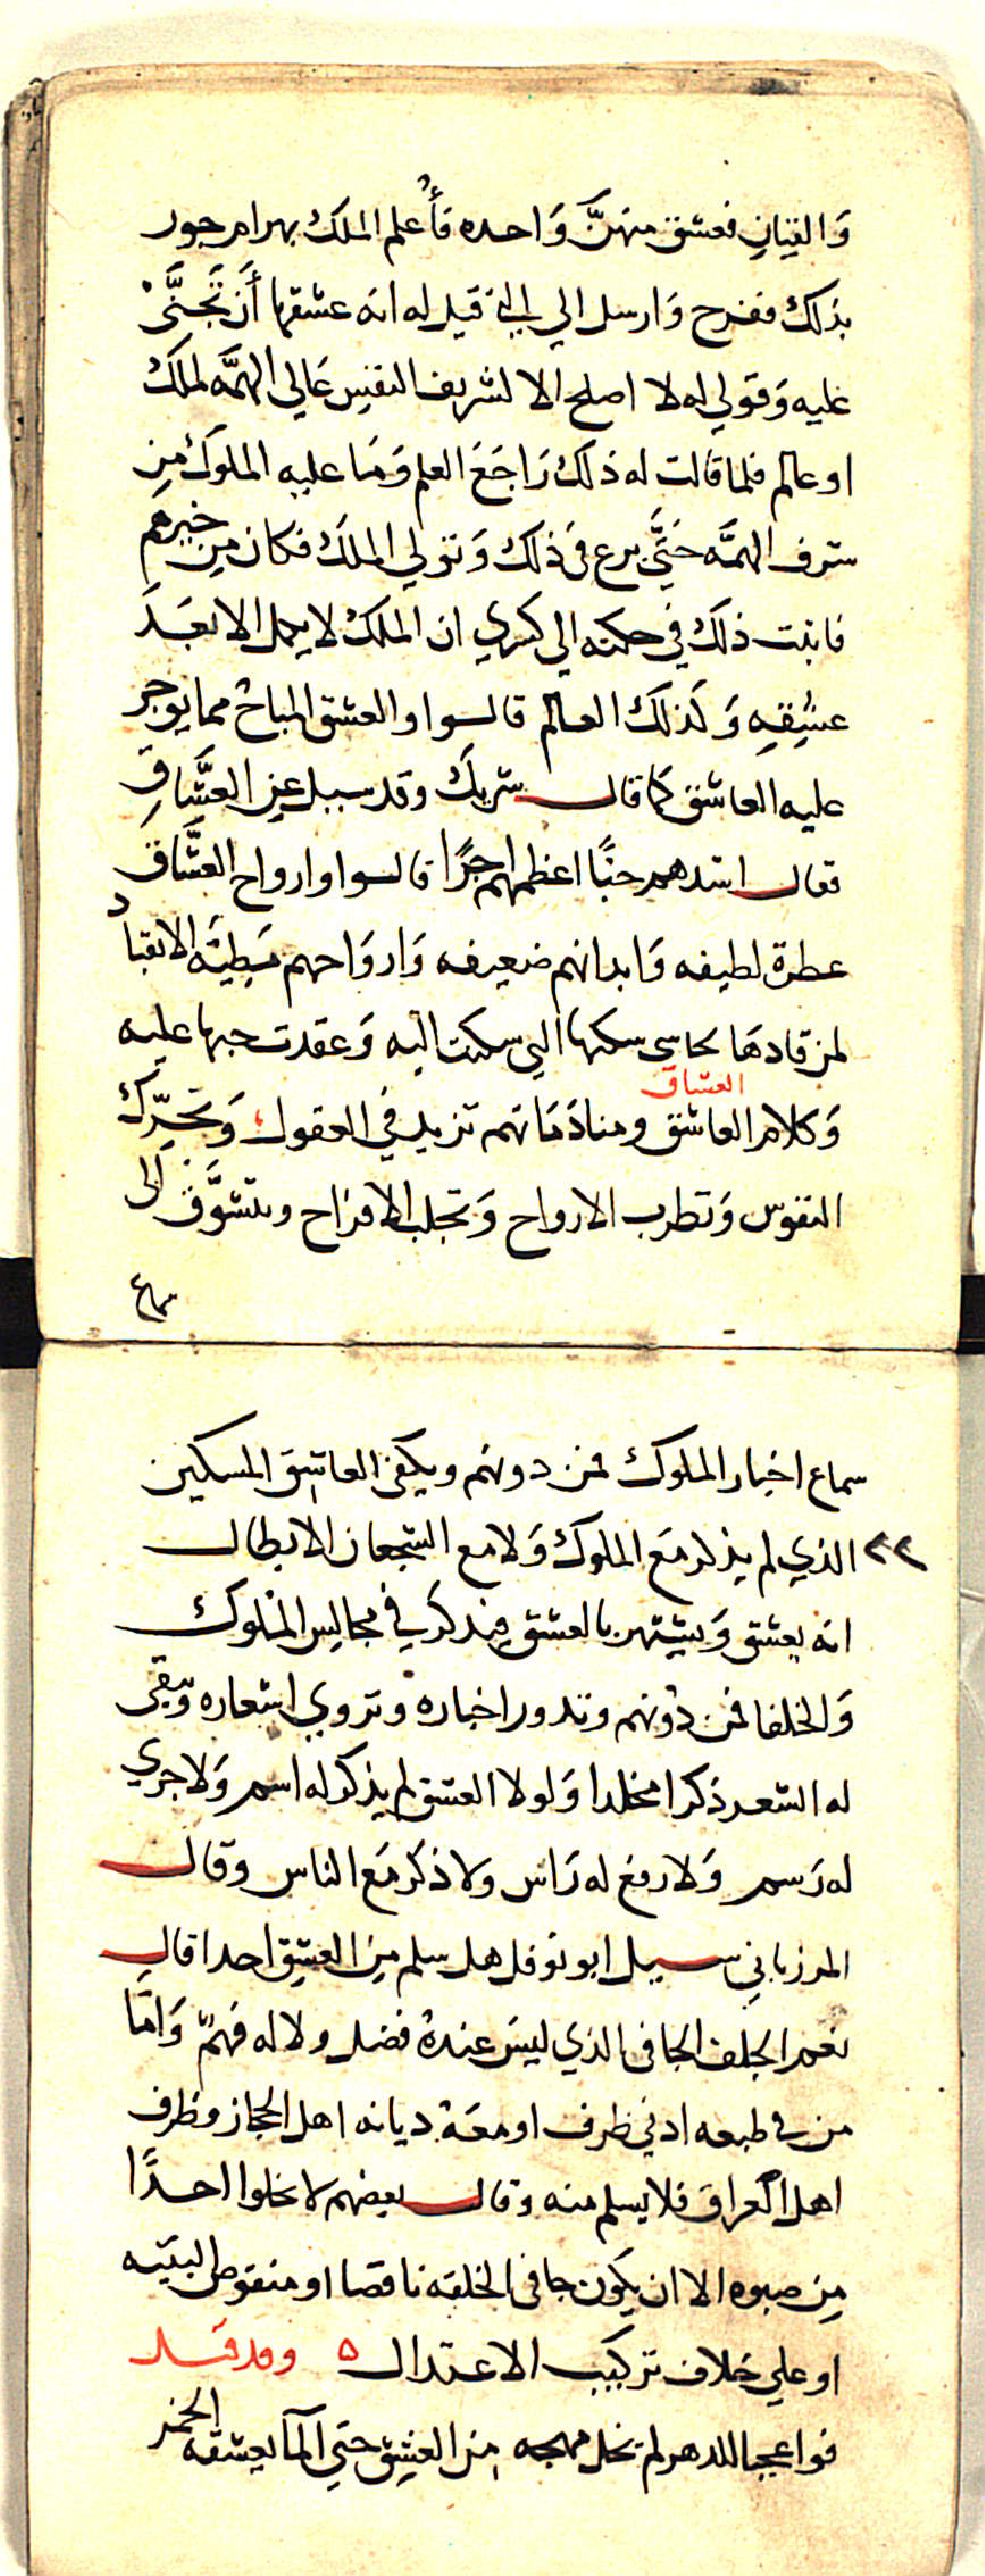 وَالقيَانِ فعشق منهنَّ وَاحده فأُعلم الملك بهرام جور
بذلك ففرح وَارسل الي التي قيل له انه عشقها أَن تَجَنَّيْ
عليه وَقولي له لا اصلح الا لشريف النفس عَالي الهمَّه لملك
او عالم فلما قالت له ذلك رَاجَعَ العلم وَمَا عليه الملوك مِن
شرف الهمَّه حَتَّي برع في ذلك وَتولي الملك فكان مِن خيرهم
فاثبت ذلك في حكمته الي كسري ان الملك لا يكمل الا بَعَد
عشِقِهِ وَكَذلك العالم قالوا والعشق المباح مما يوجر
عليه العاشق كما قال شريك وقد سيل عن العشَّاقِ
فقال اشدهم حبًّا اعظمهم اجرًا قالوا وارواح العشَّاق
عطرة لطيفه وَابدانهم ضعيفه وَاروَاحهم بَطِيَّه الانقياد
لمن قادهَا حاشي سكنها التي سكنت اليه وَعقدت حبها عليه
العشاق
وَكلام العاشق ومنادَمَاتهم تزيد في العقول وَتحَرِّك
النفوس وَتطرب الارواح وَتجلب الافراح ويتشوَّف الى
سماع
سماع اخبار الملوك فمن دونهم ويكفي العاشق المسكين
٢٢ الذي لم يذكر مَع الملوك وَلا مع الشجعان الابطال
انه يعشق وَيشتهر بالعشق فيذكر في مجالِس الملوك
وَالخلفا فمن دُونهم وتدور اخباره وتروي اشعاره وَيبقى
له الشعر ذكرا مخلدا وَلولا العشق لم يذكر له اسم وَلا جري
له رَسم وَلا رفع له رَاس ولا ذكر مَع الناس وقال
المرزبانِي سيل ابو نوفل هل سلم مِن العشِق احدا قال
نعم الجلف الجافي الذي ليسَ عندهُ فضل ولا له فهمٌ وَامَّا
من في طبعه ادني ظرف او معَهُ ديانه اهل الحجاز وظرف
اهل العراق فلا يسلم منه وقال بعضهم لا يخلوا احدًا
مِن صبوه الا ان يكون جافى الخلقه ناقصا او منقوص البنيَه
او علي خلاف تركيب الاعتدال ٥ وقد قيل
فواعجبا للدهر لم تخل مهجه مِن العشِق حتي المآ يعشقه الخمر